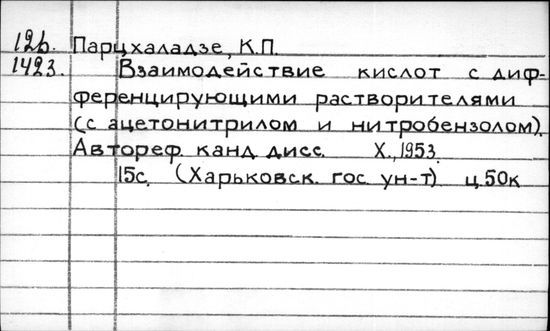 12б. Парцхаладзе, К.П.
1423. Взаимодействие кислот с диф-
ференцирующими растворителями
(с ацетонитрилом и нитробензолом).
Автореф. канд. дисс. Х., 1953.
15с. (Харьковск. гос. ун-т) ц.50к